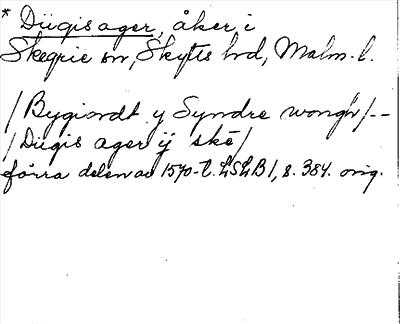 * Diigis ager, åker i
Skegrie sn, Skytts hd, Malm. l.
/Bygiordt y Syndre wongh/--
/Diigis ager ij skē/
förra delen av 1570-t. LSLB 1, s. 384. orig.